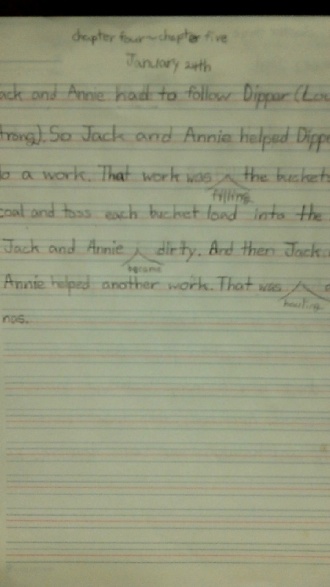 chapter four~chapter five
January 24th
ack and Annie had to follow Dipper (Lou
trong). So Jack and Annie helped Dippe
o a work. That work was filling the buckets
coal and toss each bucket load into the
Jack and Annie became dirty. And then Jack
Annie helped another work. That was hauling
nos.